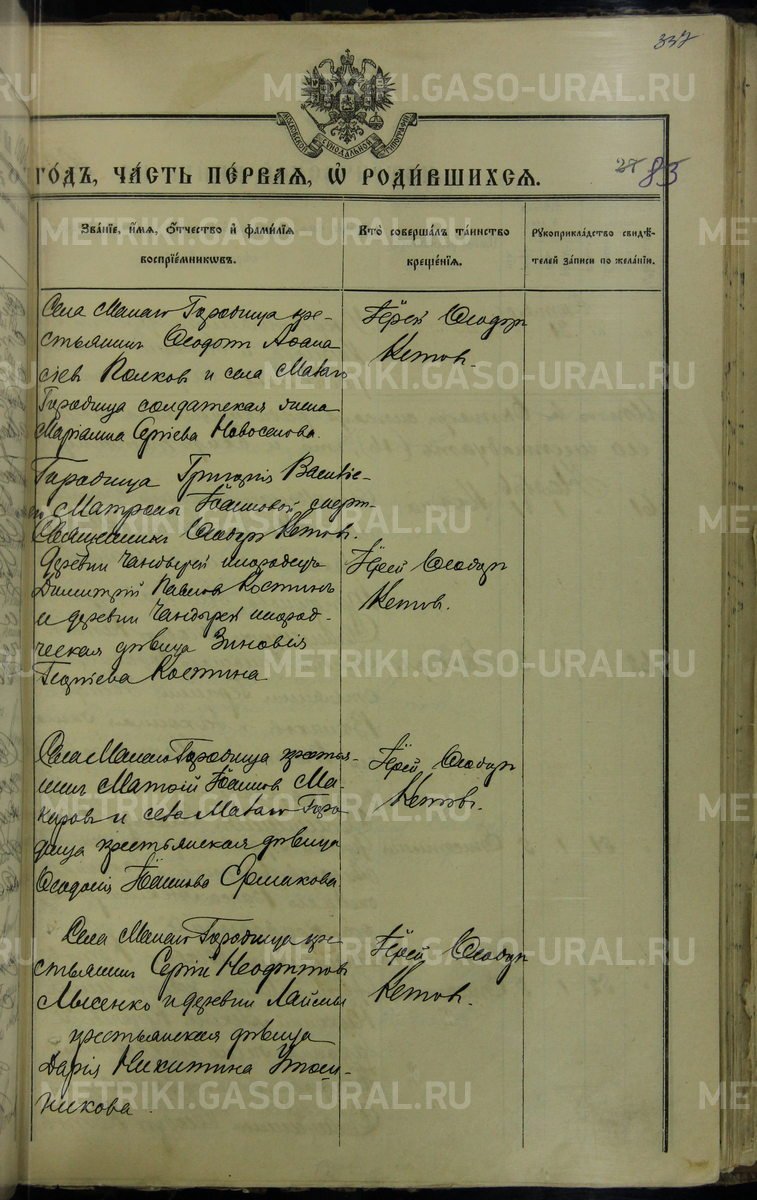 337
METRIKI.GASO-URAL.RU
МОСКОВСКОЙ СѴНОДАЛЬНОЙ ТИПОГРАФІИ
ГОДЪ, ЧАСТЬ ПЕРВАЯ, Ѡ РОДИВШИХСЯ.
27 85
Званіе, имя, отчество и фамилія воспріемниковъ.
Кто совершалъ таинство крещенія.
Рукоприкладство свидѣтелей записи по желанію.
Села Малаго Городища кре-
стьянинъ Ѳеодотъ Аѳана
сіевъ Волковъ и села Малаго
Городища солдатская жена
Маріамна Сергіева Новоселова.
Іерей Ѳеодоръ
Кетовъ.
Городища Григорія Василіе-
Матроны Іоанновой
Священникъ Ѳеодоръ Кетовъ.
Деревни Чандырей инородецъ
Димитрій Павловъ Костинъ
и деревни Чандырей инород-
ческая дѣвица Зиновія
Георгіева Костина
Іерей Ѳеодоръ
Кетовъ.
Села Малаго Городища крестья-
нинъ Матѳій Іоанновъ Ма-
каровъ и села Малаго Горо
дища крестьянская дѣвица
Ѳеодосія Іоаннова Ермакова
Іерей Ѳеодоръ
Кетовъ.
Села Малаго Городища кре
стьянинъ Сергій Неофитовъ
Лысенко и деревни Лаймы
крестьянская дѣвица
Дарія Никитина
никова.
Іерей Ѳеодоръ
Кетовъ.